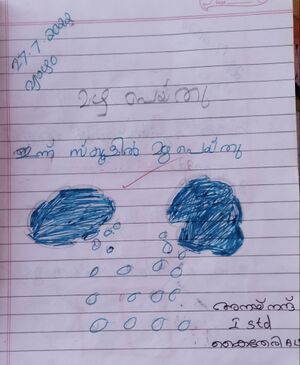 27.7.2022
വ്യാഴം
മഴ പെയ്തു
ഇന്ന് സ്കൂളിൽ മഴ പെയ്തു
I std
കൈതേരി